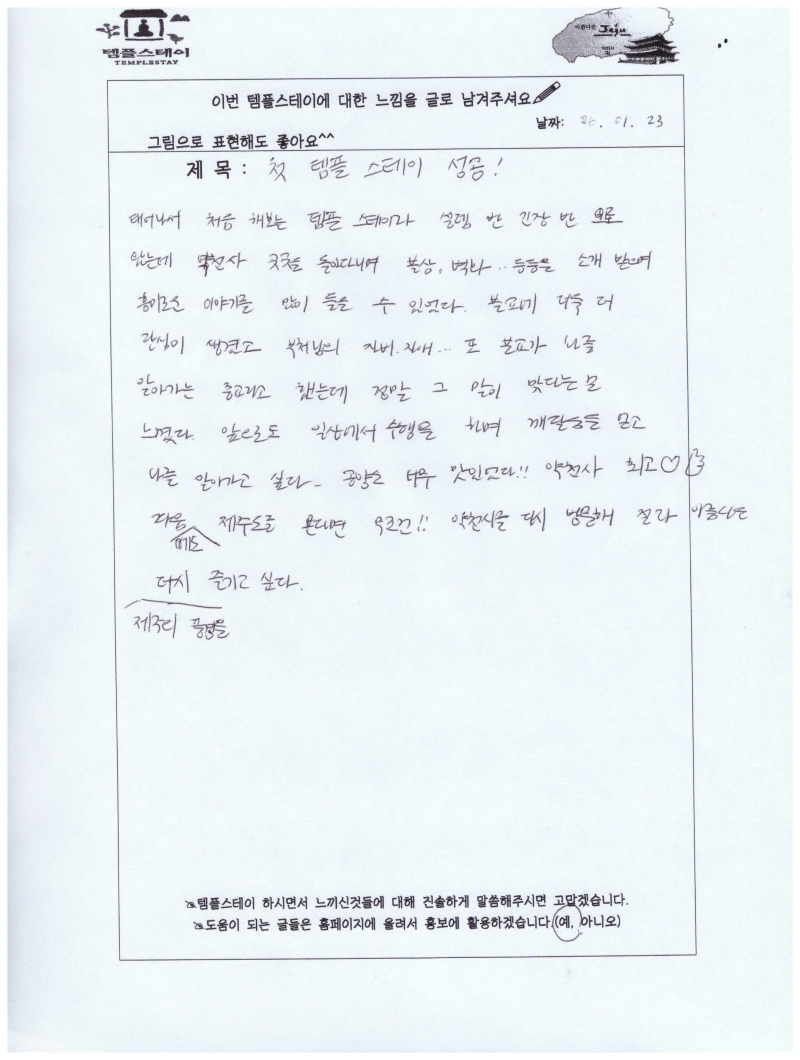 템플스테이
TEMPLESTAY
아름다운 Jeju
이번 템플스테이에 대한 느낌을 글로 남겨주셔요
날짜: 26. 01. 23
그림으로 표현해도 좋아요^^
제 목 : 첫 템플 스테이 성공!
태어나서 처음 해보는 템플 스테이라 설렘 반 긴장 반 으로
왔는데 약천사 곳곳을 돌아다니며 불상, 벽화.. 등등을 소개 받으며
흥미로운 이야기를 많이 들을 수 있었다. 불교에 더욱 더
관심이 생겼고 부처님의 자비.자애... 또 불교가 나를
알아가는 종교라고 했는데 정말 그 말이 맞다는 걸
느꼈다. 앞으로도 일상에서 수행을 하며 깨달음을 얻고
나를 알아가고 싶다.. 공양도 너무 맛있었다!! 약천사 최고♡
다음에도 제주도를 온다면 무조건!! 약천사를 다시 방문해 절과 아름다운
제주의 풍경을
다시 즐기고 싶다.
템플스테이 하시면서 느끼신것들에 대해 진솔하게 말씀해주시면 고맙겠습니다.
도움이 되는 글들은 홈페이지에 올려서 홍보에 활용하겠습니다.(예, 아니오)